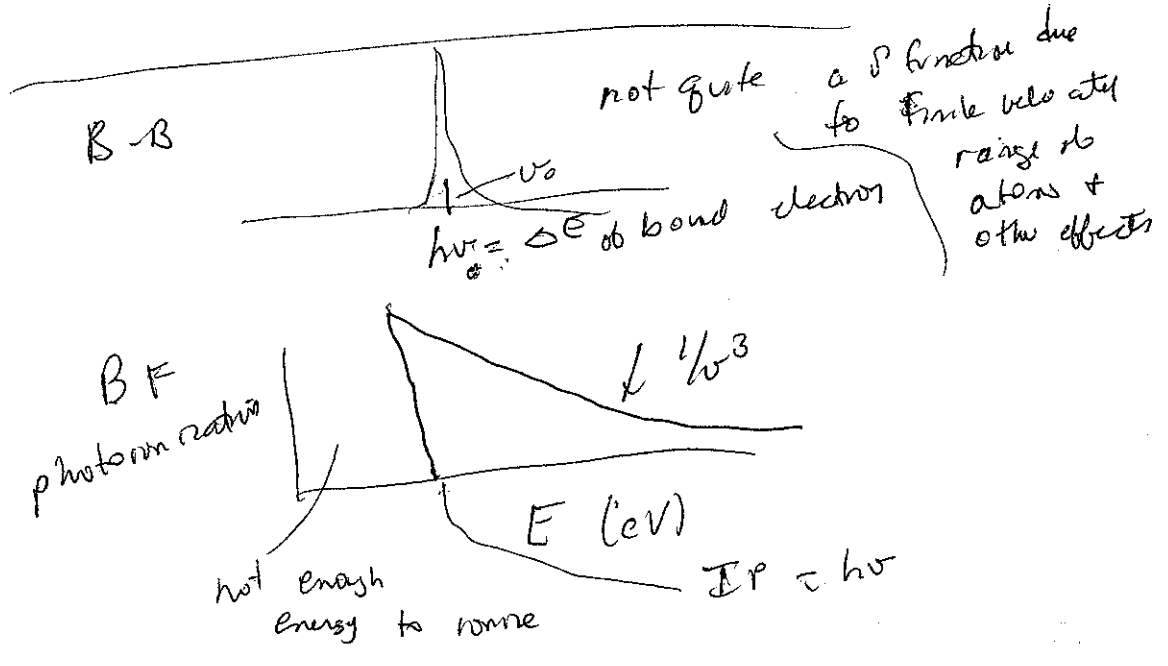 B-B
not quite a δ function due
to finite velocity
range of
atoms +
other effects
ν₀
hν₀ = ΔE of bound electron
BF
photoionization
∝ 1/ν³
E (eV)
IP = hν
not enough
energy to ionize